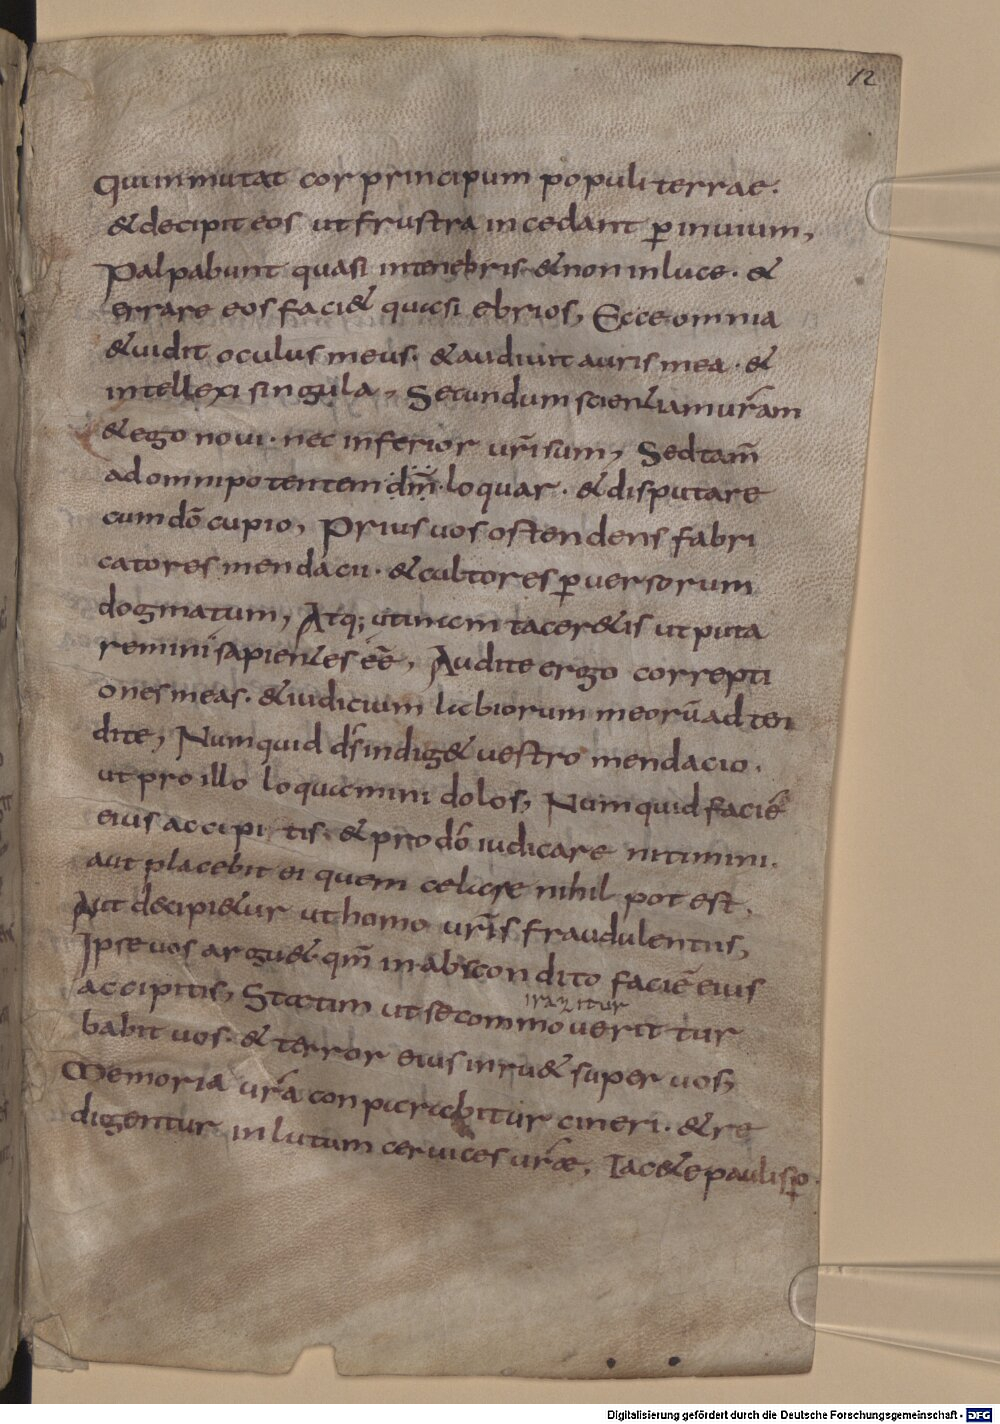 12
Qui inmutat cor principum populi terrae.
& decipit eos ut frustra incedant ꝑ inuium,
Palpabunt quasi in tenebris & non in luce. &
errare eos faci& quasi ebrios, Ecce omnia
& uidit oculus meus. & audiuit auris mea. &
intellexi singula, Secundum scientiam ur̃am
& ego noui. nec inferior ur̃i sum, Sed tam̃
ad omnipotentem dm̃ loquar. & disputare
cum dō cupio, Prius uos ostendens fabri
catores mendacii. & cultores ꝑuersorum
dogmatum, Atq; utinam tacer&is ut puta
remini sapientes eē, Audite ergo correpti
ones meas. & iudicium labiorum meorū adten
dite, Numquid dS̄ indig& uestro mendacio.
ut pro illo loquamini dolos, Numquid faciē
eius accipitis. & pro dō iudicare nitimini.
aut placebit ei quem celare nihil potest.
Aut decipi&ur ut homo ur̃is fraudulentiis,
Ipse uos argu&. qm̃ in abscondito faciē eius
accipitis, Statim ut se commouerit tur
babit uos. & terror eius inru& super uos,
Memoria ur̃a conparabitur cineri. & re
digentur in lutum ceruices ur̃ae, Tac&e paulisꝑ.
Digitalisierung gefördert durch die Deutsche Forschungsgemeinschaft - DFG